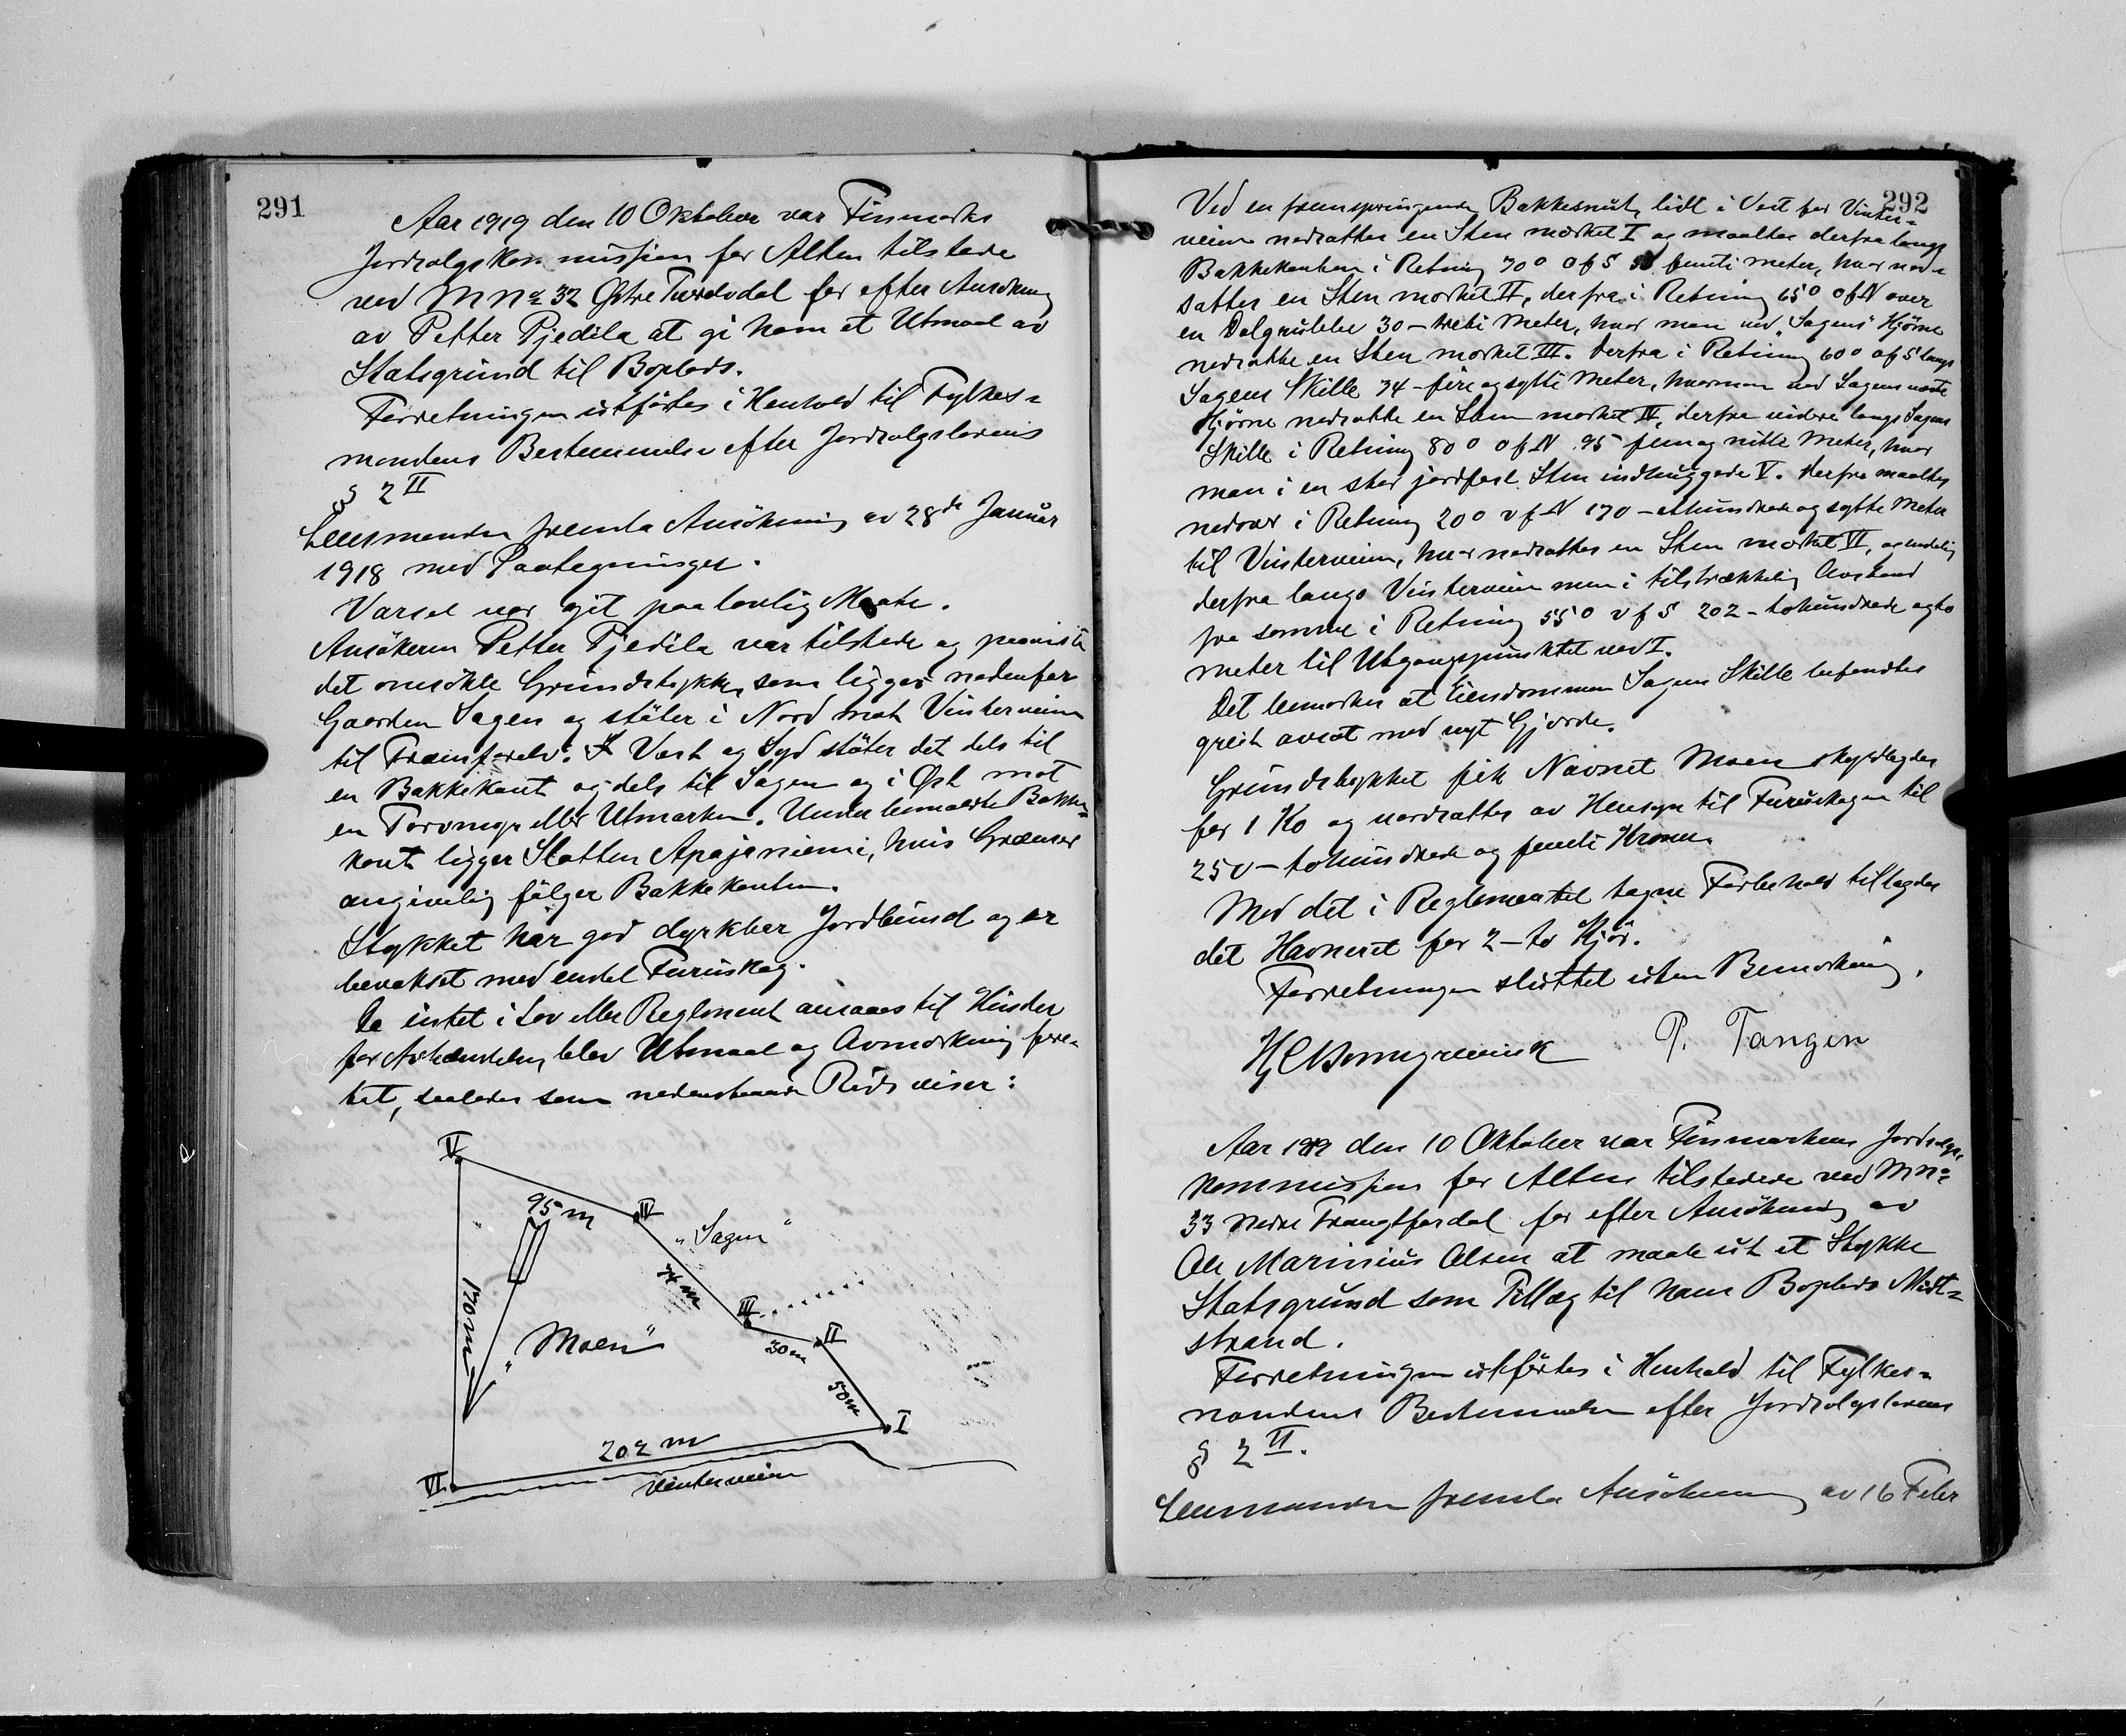 291
Aar 1919 den 10 Oktober var Finmarks
Jordsalgskommission for Alten tilstede
ved M No 32 Østre Tverelvdal for efter Ansökning
av Petter Pjedila at gi ham et Utmaal av
Statsgrund til Boplads.
Forretningen utförtes i Henhold til Fylkes-
mandens Bestemmelse efter Jordsalgslovens
§ 2 II
Lensmanden fremla Ansökning av 28de Januar
1918 med Paategninger.
Varsel var git paa lovlig Maate.
Ansökeren Petter Pjedila var tilstede og paaviste
det ansökte Grundstykke, som ligger nedenfor
Gaarden Sagen og stöter i Nord mot Vinterveien
til Tramfarelv. I Vest og Syd stöter det dels til
en Bakkekant og dels til Sagen og i Øst mot
en Torvmyr eller Utmarken. Under bemældte Bakke-
kant ligger Slatten Apajaniemi, hvis Grænser
angivelig fölger Bakkekanten.
Stykket har god dyrkbar Jordbund og er
bevokset med endel Furuskog.
Da intet i Lov eller Reglement ansaaes til Hinder
for Avhændelse, blev Utmaal og Avmerkning fore-
tat, saaledes som nedenstaaende Rids viser:
V
95 m
IV
"Sagen"
74 m
170 m
III
II
"Moen"
30 m
50 m
I
202 m
VI
Vinterveien
292
Ved en fremspringende Bakkesnut, lidt i Vest for Vinter-
veien nedsattes en Sten merket I og maaltes derfra langs
Bakkekanten i Retning 70° O f S 50 femti meter, hvor ned-
sattes en Sten merket II, derfra i Retning 65° O f N over
en Dalgrubbe 30 - treti Meter, hvor man ved "Sagens" Hjörne
nedsatte en Sten merket III. Derfra i Retning 60° O f S langs
Sagens Skille 74 - fire og sytti Meter, hvor man ved Sagens næste
Hjörne nedsatte en Sten merket IV, derfra videre langs Sagens
Skille i Retning 80° O f N 95 fem og nitti Meter, hvor
man i en stor jordfast Sten indhuggede V. Derfra maaltes
nedover i Retning 20° V f N 170 - ethundrede og sytti Meter
til Vinterveien, hvor nedsattes en Sten merket VI, og endelig
derfra langs Vinterveien men i tilstrækkelig Avstand
fra samme i Retning 55° V f S 202 - tohundrede og to
meter til Utgangspunktet ved I.
Det bemerkes at Eiendommen Sagens Skille befandtes
greit avsat med nyt Gjærde.
Grundstykket fik Navnet Moen skyldlagdes
for 1 Ko og værdsattes av Hensyn til Furuskogen til
250 - tohundrede og femti Kroner.
Med det i Reglementet tagne Forbehold tillagdes
det Havneret for 2 - to Kjör.
Forretningen sluttet uten Bemerkning.
P. Tangen
Aar 1919 den 10 Oktober var Finmarkens Jordsalgs-
kommission for Alten tilstede ved M No
33 Nedre Trangfordal for efter Ansökning av
Ole Marinius Olsen at maale ut et Stykke
Statsgrund som Tillæg til hans Boplads Midt-
strand.
Forretningen utförtes i Henhold til Fylkes-
mandens Bestemmelse efter Jordsalgslovens
§ 2 II.
Lensmanden fremla Ansökning av 16 Febr